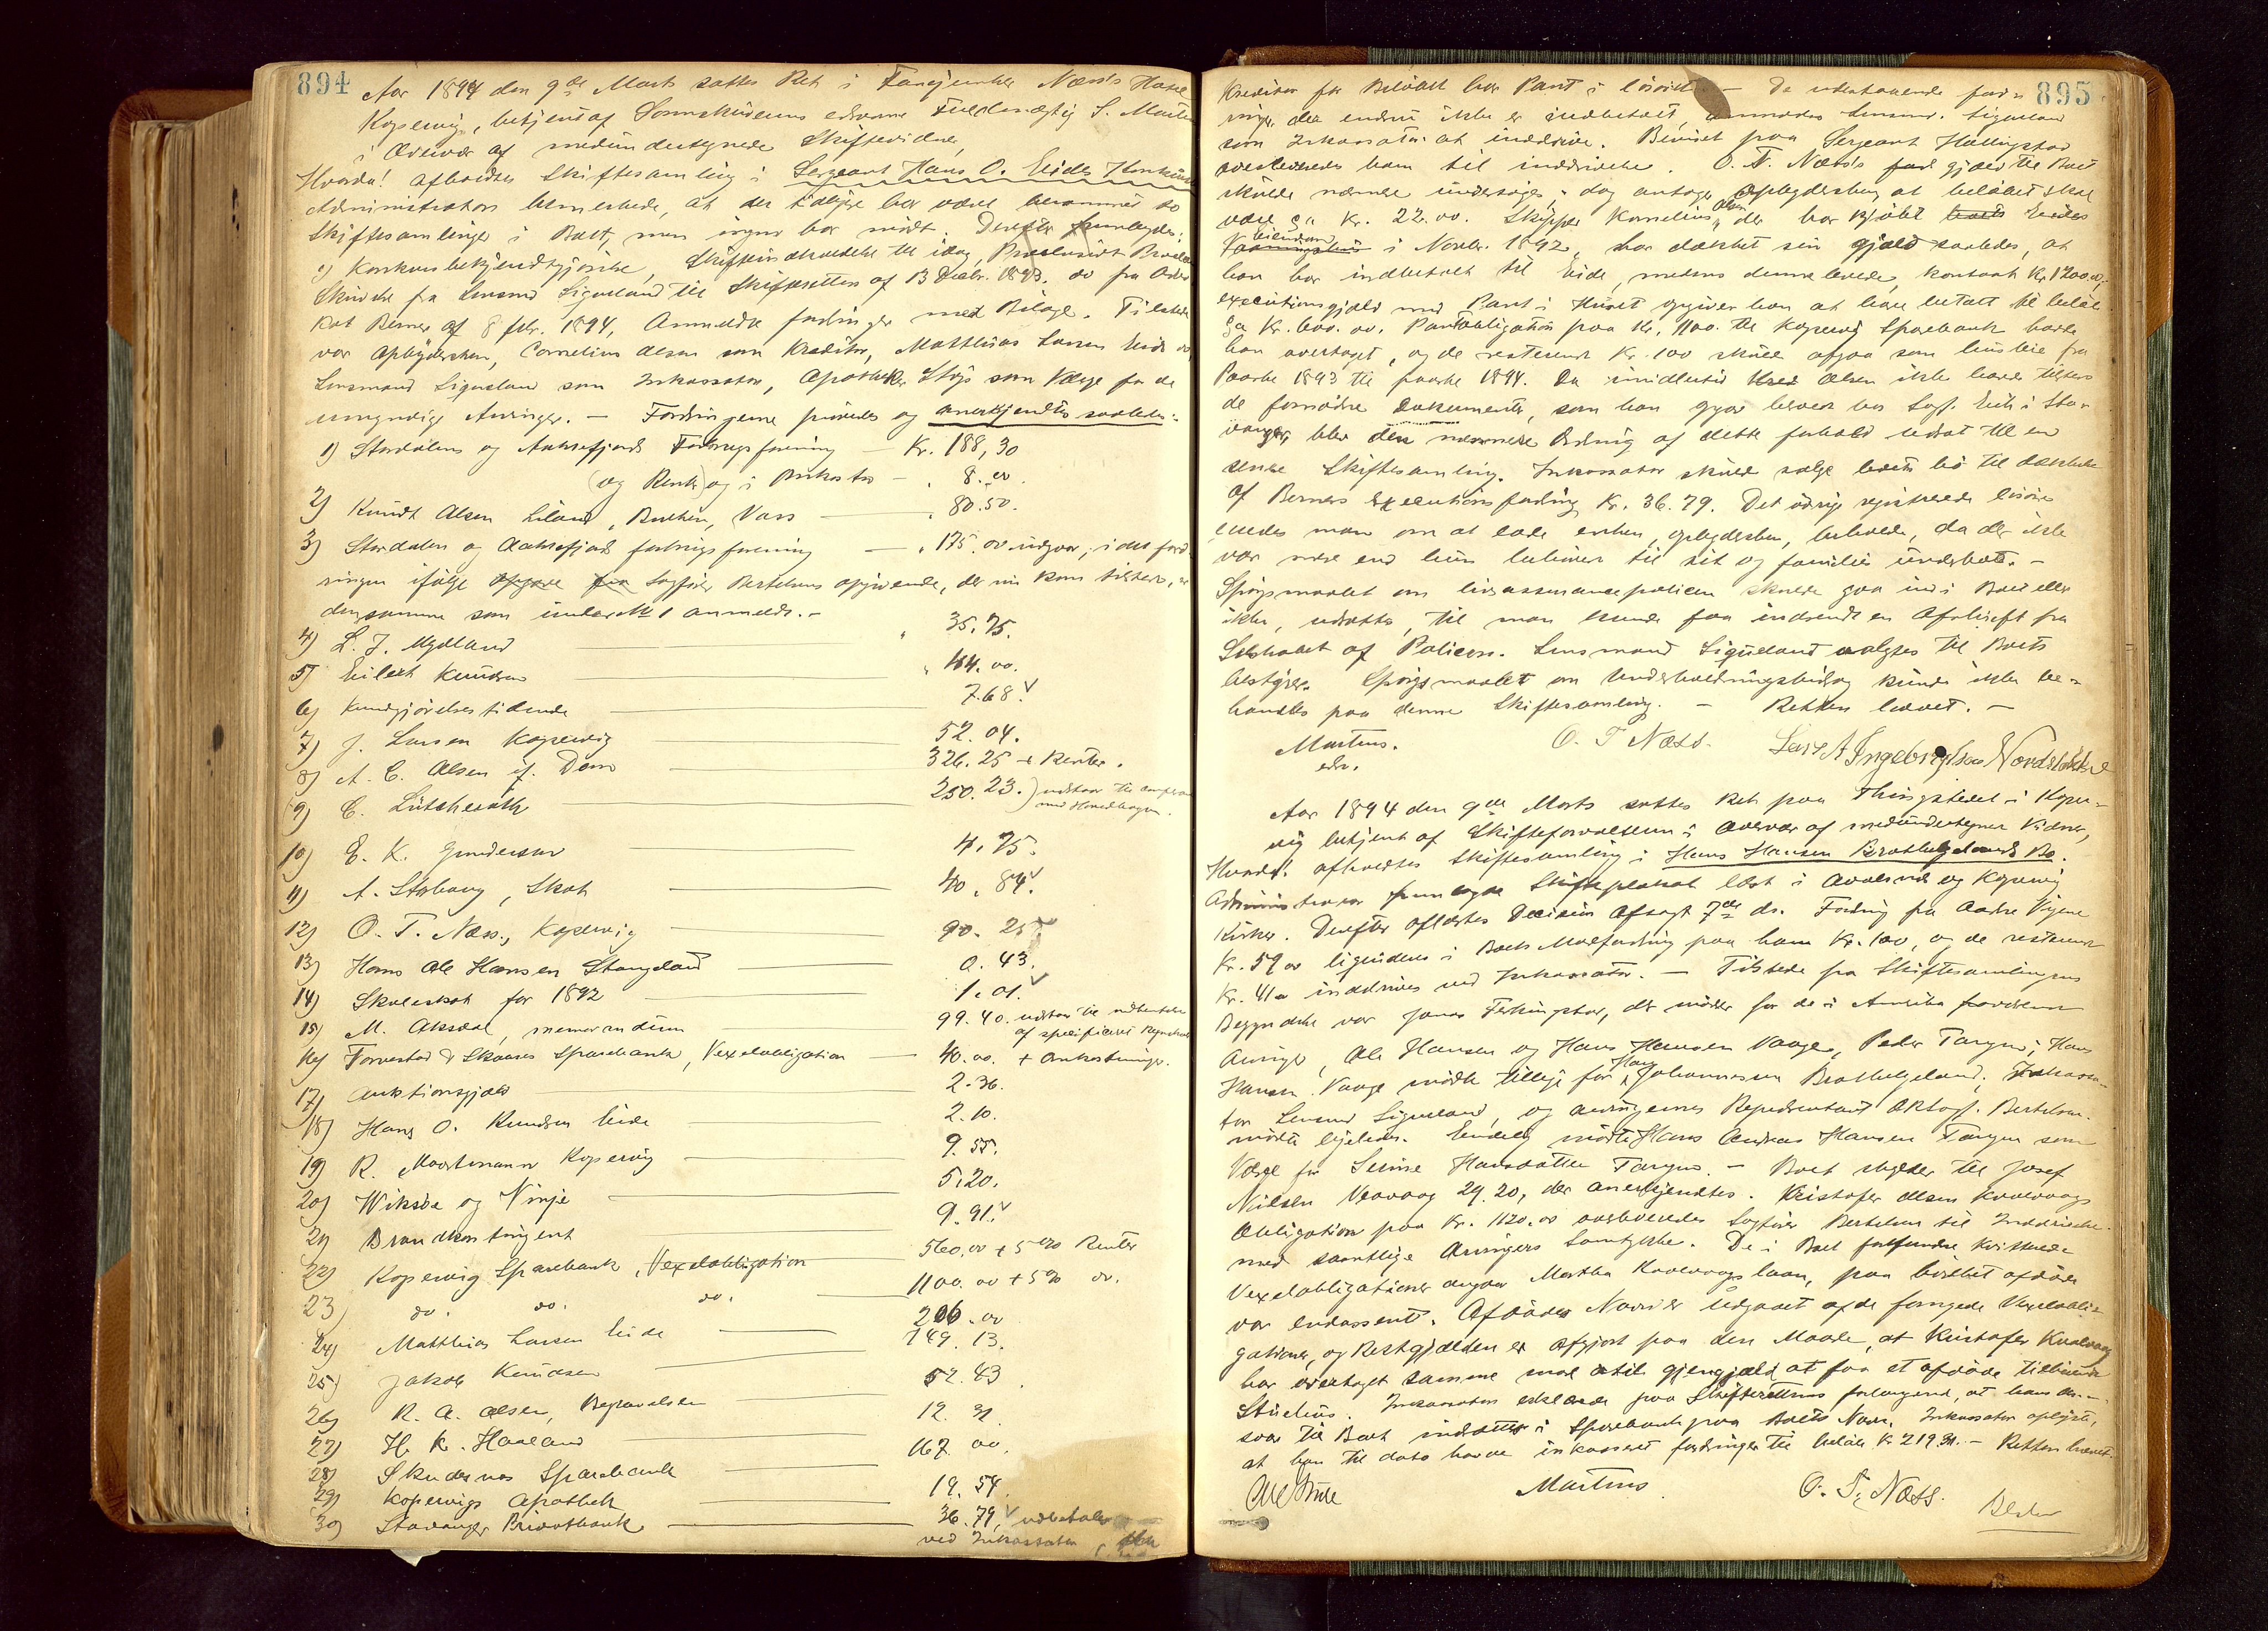 894
Aar 1894 den 9de Marts sattes Ret i Færgemand Næss's Huse
Kopervig, betjent af Sorenskriverens edsvorne Fuldmægtig S. Martens
i Overvær af medundertegnede Skiftevidner,
Hvorda! afholdtes Skiftesamling i Sergeant Hans O. Eides Konkurs
Administrator bemerkede, at der tidligere har været berammet to
Skiftesamlinger i Boet, men ingen har mødt. Derefter fremlagdes:
Konkursbekjendtgjørelse, Skifteindkaldelse til idag, Præclusivt Proclama
Skrivelse fra Lensmd Sigueland til Skifteretten af 13 Decbr. 1893, do fra Advo-
kat Berner af 8 febr. 1894, Anmeldte fordringer med Bilage. Tilstede
var opbydersken, Cornelius Olsen som Kreditor, Matthias Larsen Eide
Lensmand Sigueland som Inkassator, Apotheker Strøs som Værge for de
umyndige Arvinger. — Fordringerne prøvedes og anerkjendtes saaledes:
1) Stordøens og Aakrefjords Forbrugsforening — Kr. 188,30
(og Renter) og i Omkostn — „ 8.00
2) Knudt Olsen Liland, Bulken, Voss — „ 80.50.
3) Stordalen og Aakrefjords forbrugsforening — „ 175.00 udgaar, i det ford-
ringen ifølge Opgave fra Sagfører Bertelsens opgivende, der nu kom tilstede, er
den samme som under № 1 anmeldt. —
4) L. J. Mydland „ 35.75.
5) Eilert Knudsen „ 44.00.
6) Kundgjørelsestidende 7.68 ✓
7) J. Larsen Kopervig 52.04.
8) A. C. Olsen if. Dom 326.25 + Renter.
9) C. Lütcherath 250.23.) udstaar til
med Hovedbogen.
10) E. K. Gundersen 4.75.
11) A. Stabong, Skat 40.84 ✓
12) O. T. Næss, Kopervig 90.25
13) Hans Ole Hansen Stangeland 0.43.
14) Skoleskat for 1892 1.01. ✓
15) M. Aksdal, memorandum 99.40. udstaar til indhentelse
af specificeret Regning
16) Torvestad & Skaares Sparebank, Vexelobligation — 40.00. + Omkostninger.
17) Auktionsgjæld 2.36.
18) Hans O. Knudsen Eide 2.10.
19) R. Moortmann Kopervig 9.55.
20) Wiksøe og Vinje 5.20.
21) Brandkontingent 9.91. ✓
22) Kopervig Sparebank, Vexelobligation 560.00 + 5% Renter
23) do. do. do. 1100.00 + 5% do.
24) Matthias Larsen Eide 206.00
25) Jakob Knudsen 149.13.
26) R. A. Olsen, Begravelsen 52.43
27) H. K. Haaland 12.31
28) Skudesnes Sparebank 167.00.
29) Kopervigs Apothek 19.54
30) Stavanger Privatbank 36.79, ✓ udbetales
ved Inkassator
895
Kreditor for Beløbet har Pant i løsøret. — De udestaaende ford-
ringer, der endnu ikke er indbetalt, anmodes Lensmd. Sigueland
som Inkassator at inddrive. Beviset paa Sergeant Hallingstad
overleveredes ham til inddrivelse. O. T. Næss's gjæld til Boet
skulde nærmere undersøges; dog antager opbydersken, at beløbet skal
være ca Kr. 22.00. Skipper Kornelius Olsen der har kjøbt boets Eides
eiendom i Novbr. 1892, har dækket sin gjæld saaledes, at
han har indbetalt til Eide, medens denne levede, kontant Kr 1200.00,
executionsgjæld med Pant i Huset opgiver han at have betalt til beløb
ca Kr. 600.00. Pantobligation paa Kr. 1100. til Kopervig Sparebank havde
han overtaget, og de resterende Kr. 100 skulde afgaa som husleie fra
Paaske 1893 til paaske 1894. Da imidlertid Olsen ikke havde tilstede
de fornødne Dokumenter, som han opgav beroede hos Sagf. Eich i Sta-
vanger, blev den nærmere Ordning af dette forhold udsat til en
senere Skiftesamling. Inkassator skulde sælge boets bø til dækkelse
af Berners Executionsfordring Kr. 36.79. Det øvrige registrerede løsøre
enedes man om at lade enken, opbydersken, beholde, da der ikke
var mere end hun behøver til sit og families underhold. —
Spørgsmaalet om livsassurancepolicen skulde gaa ind i Boet eller
ikke, udsattes, til man kunde faa indsendt en Afskrift fra
Selskabet af Policen. Lensmand Sigueland valgtes til Boets
bestyrer. Spørgsmaalet om Underholdningsbidrag kunde ikke be-
handles paa denne Skiftesamling. — Retten hævet. —
Martens.
edsv.
O. T Næss.
Lars A Ingebrigtsen Nordstokke
Aar 1894 den 9de Marts sattes Ret paa Thingstedet i Koper-
vig betjent af Skifteforvalteren i Overvær af medundertegnede Vidner,
Hvorda! afholdtes Skiftesamling i Hans Hansen Brathelgelands Bo.
Administrator fremlagde Skifteplakat læst i Avaldsnæs og Kopervig
Kirker. Derefter oplæstes Decision afsagt 7de ds. Fordring fra
Kr. 59.00 ligeledes i Boets Modfordring paa ham Kr. 100, og de resterende
Kr. 41.00 inddrives ved Inkassator. — Tilstede fra Skiftesamlingens
Begyndelse var Jonas Ferkingstad, der møder for de i Amerika fraværende
Arvinger, Ole Hansen og Hans Hansen Vaage, Peder Tangen; Hans
Hansen Vaage mødte tillige for Hans Johannessen Brathelgeland; Inkassa-
tor Lensmd Sigueland, og arvingernes Repræsentant ORSagf. Bertelsen
mødte ligeledes. Endelig mødte Hans Andreas Hansen Tangen som
Værge for Serine Hansdatter Tangen. — Boet skylder til Josef
Nielsen Veavaag 29.20, der anerkjendtes. Kristofer Olsen Kvalavaags
Obligation paa Kr. 1120.00 overleveredes Sagfører Bertelsen til Inddrivelse
med samtlige Arvingers Samtykke. De i Boet forfundne kvitterede
Vexelobligationer angaar Martha Kvalevaags laan, paa hvilket afdøde
var endossent. Afdødes Navn er udgaaet af de fornyede Vexelobli-
gationer, og Restgjælden er afgjort paa den Maade, at Kristofer Kvalevaag
har overtaget samme mod til gjengjæld at faa et afdøde tilhørende
Studehus. Inkassator erklærede paa Skifterettens forlangende, at hans An-
svar til Boet indsættes i Sparebank paa Boets Navn. Inkassator oplyste,
at han til dato havde inkasseret fordringer til beløb Kr 219.31. — Retten hævet.
Martens
O. T. Næss.